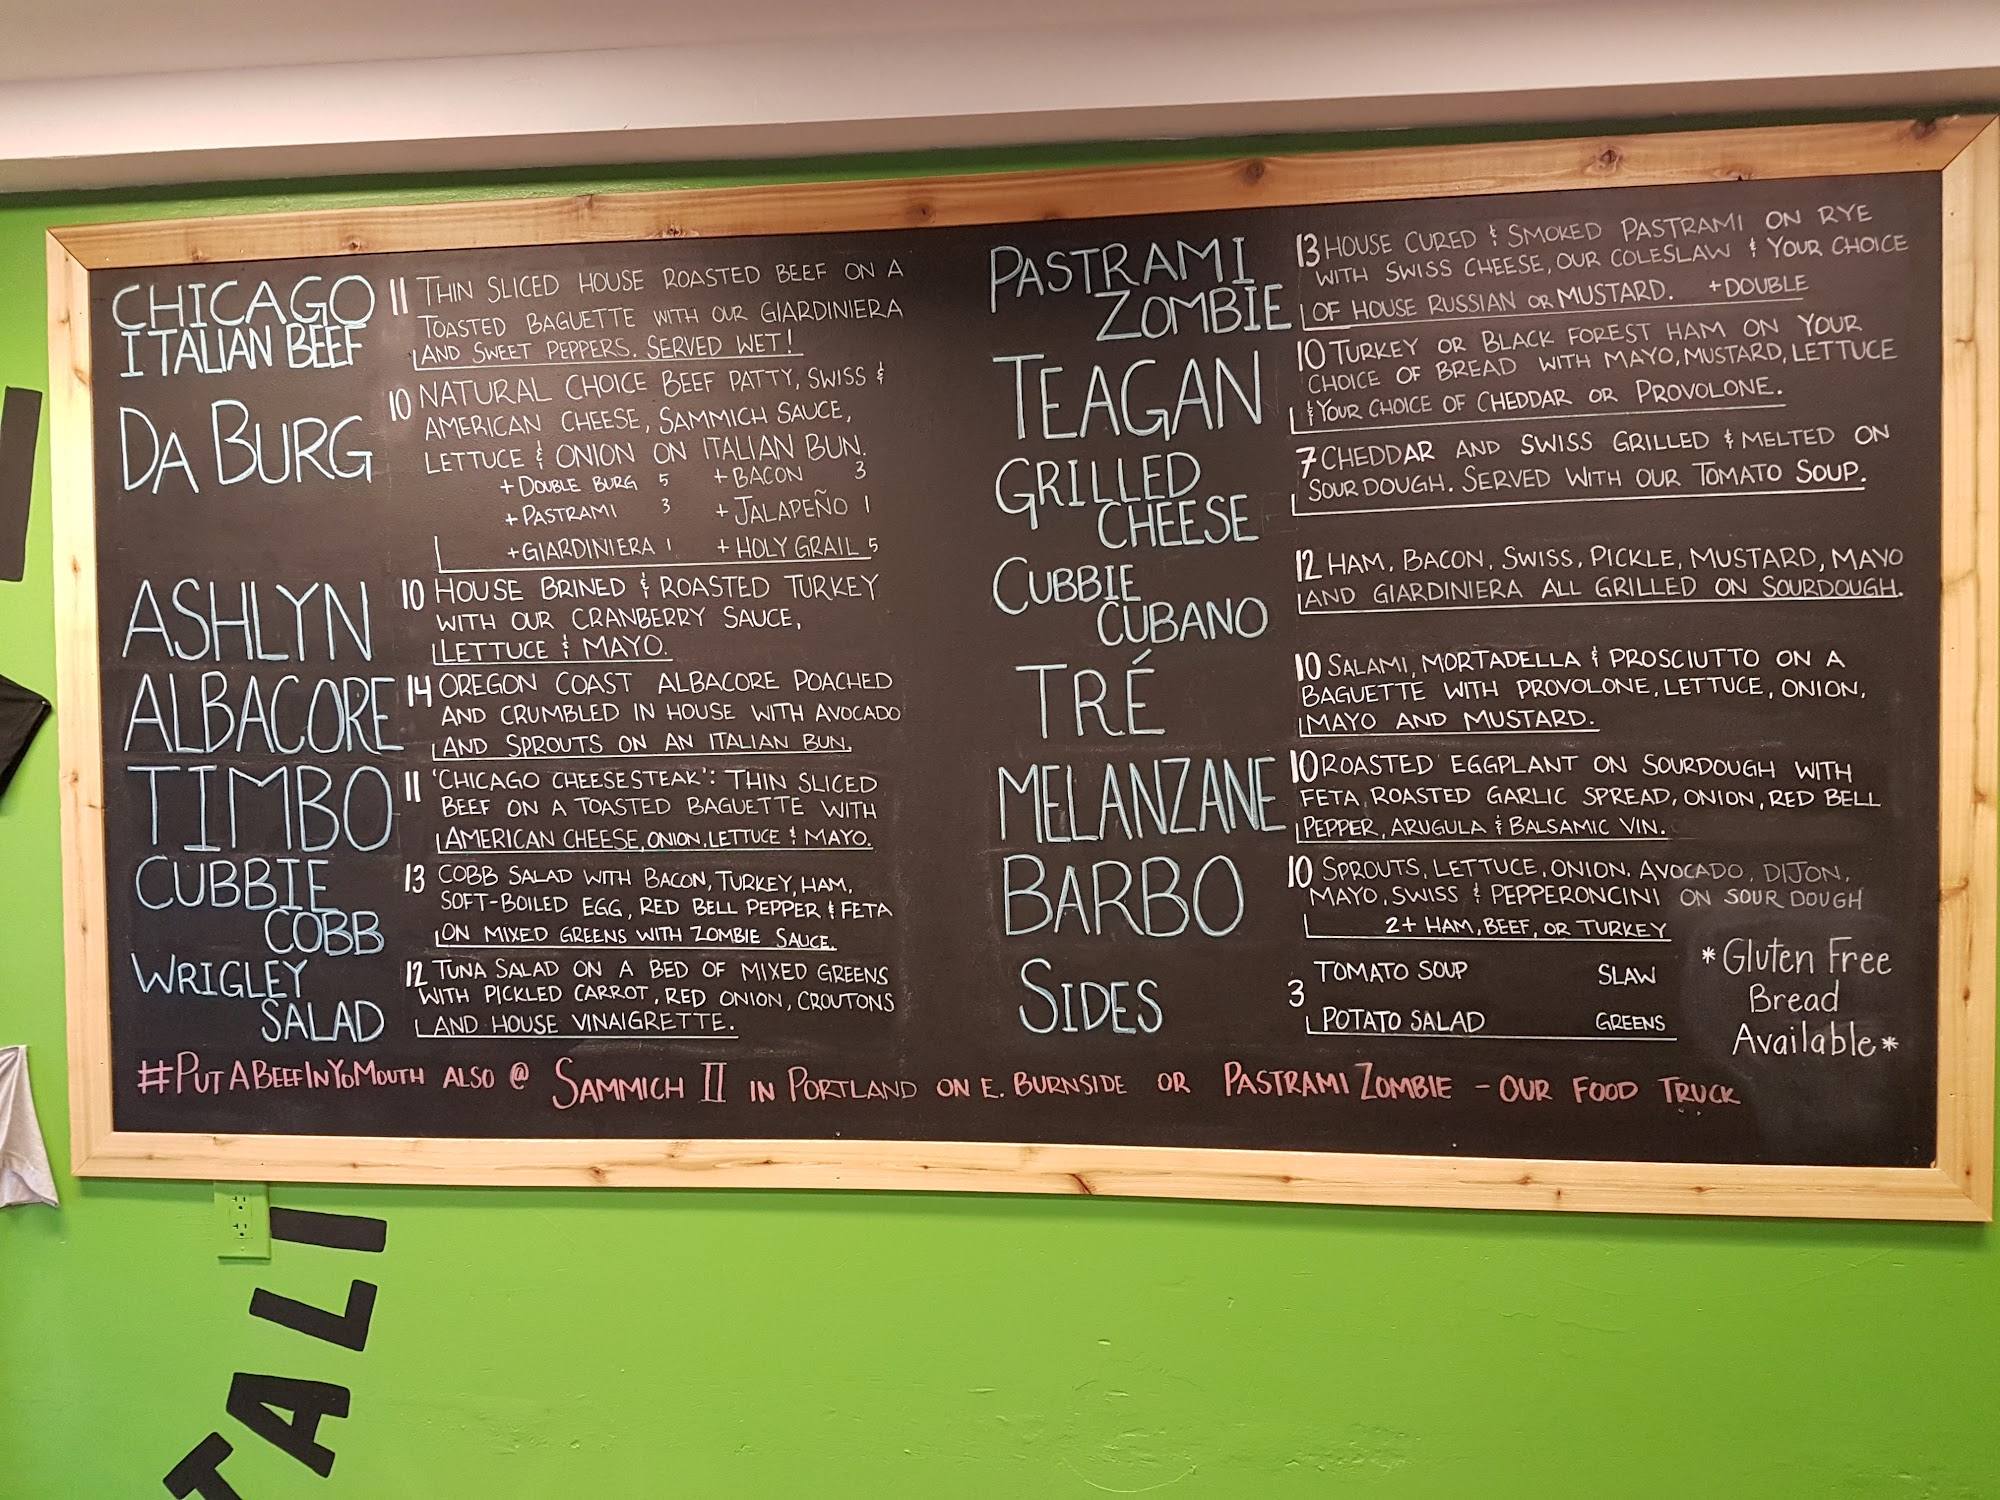 CHICAGO
ITALIAN BEEF
11 THIN SLICED HOUSE ROASTED BEEF ON A
TOASTED BAGUETTE WITH OUR GIARDINIERA
AND SWEET PEPPERS. SERVED WET!
DA BURG
10 NATURAL CHOICE BEEF PATTY, SWISS &
AMERICAN CHEESE, SAMMICH SAUCE,
LETTUCE & ONION ON ITALIAN BUN.
+ DOUBLE BURG 5 + BACON 3
+ PASTRAMI 3 + JALAPEÑO 1
+ GIARDINIERA 1 + HOLY GRAIL 5
ASHLYN
10 HOUSE BRINED & ROASTED TURKEY
WITH OUR CRANBERRY SAUCE,
LETTUCE & MAYO.
ALBACORE
14 OREGON COAST ALBACORE POACHED
AND CRUMBLED IN HOUSE WITH AVOCADO
AND SPROUTS ON AN ITALIAN BUN.
TIMBO
11 'CHICAGO CHEESESTEAK': THIN SLICED
BEEF ON A TOASTED BAGUETTE WITH
AMERICAN CHEESE, ONION, LETTUCE & MAYO.
CUBBIE
COBB
13 COBB SALAD WITH BACON, TURKEY, HAM,
SOFT-BOILED EGG, RED BELL PEPPER & FETA
ON MIXED GREENS WITH ZOMBIE SAUCE.
WRIGLEY
SALAD
12 TUNA SALAD ON A BED OF MIXED GREENS
WITH PICKLED CARROT, RED ONION, CROUTONS
AND HOUSE VINAIGRETTE.
PASTRAMI
ZOMBIE
13 HOUSE CURED & SMOKED PASTRAMI ON RYE
WITH SWISS CHEESE, OUR COLESLAW & YOUR CHOICE
OF HOUSE RUSSIAN OR MUSTARD. + DOUBLE
TEAGAN
10 TURKEY OR BLACK FOREST HAM ON YOUR
CHOICE OF BREAD WITH MAYO, MUSTARD, LETTUCE
& YOUR CHOICE OF CHEDDAR OR PROVOLONE.
GRILLED
CHEESE
7 CHEDDAR AND SWISS GRILLED & MELTED ON
SOUR DOUGH. SERVED WITH OUR TOMATO SOUP.
CUBBIE
CUBANO
12 HAM, BACON, SWISS, PICKLE, MUSTARD, MAYO
AND GIARDINIERA ALL GRILLED ON SOURDOUGH.
TRÉ
10 SALAMI, MORTADELLA & PROSCIUTTO ON A
BAGUETTE WITH PROVOLONE, LETTUCE, ONION,
MAYO AND MUSTARD.
MELANZANE
10 ROASTED EGGPLANT ON SOURDOUGH WITH
FETA, ROASTED GARLIC SPREAD, ONION, RED BELL
PEPPER, ARUGULA & BALSAMIC VIN.
BARBO
10 SPROUTS, LETTUCE, ONION, AVOCADO, DIJON,
MAYO, SWISS & PEPPERONCINI ON SOUR DOUGH
2+ HAM, BEEF, OR TURKEY
SIDES
3
TOMATO SOUP SLAW
POTATO SALAD GREENS
*Gluten Free
Bread
Available*
#PUTABEEFINYOMOUTH ALSO @ SAMMICH II IN PORTLAND ON E. BURNSIDE OR PASTRAMI ZOMBIE - OUR FOOD TRUCK
TALI